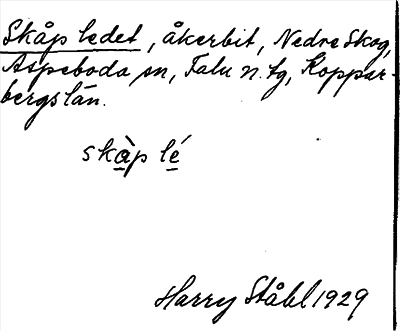 Skåp ledet, åkerbit, Nedre Skog,
Aspeboda sn, Falu n. tg, Koppar-
bergs län.
skàp lé
Harry Ståhl 1929